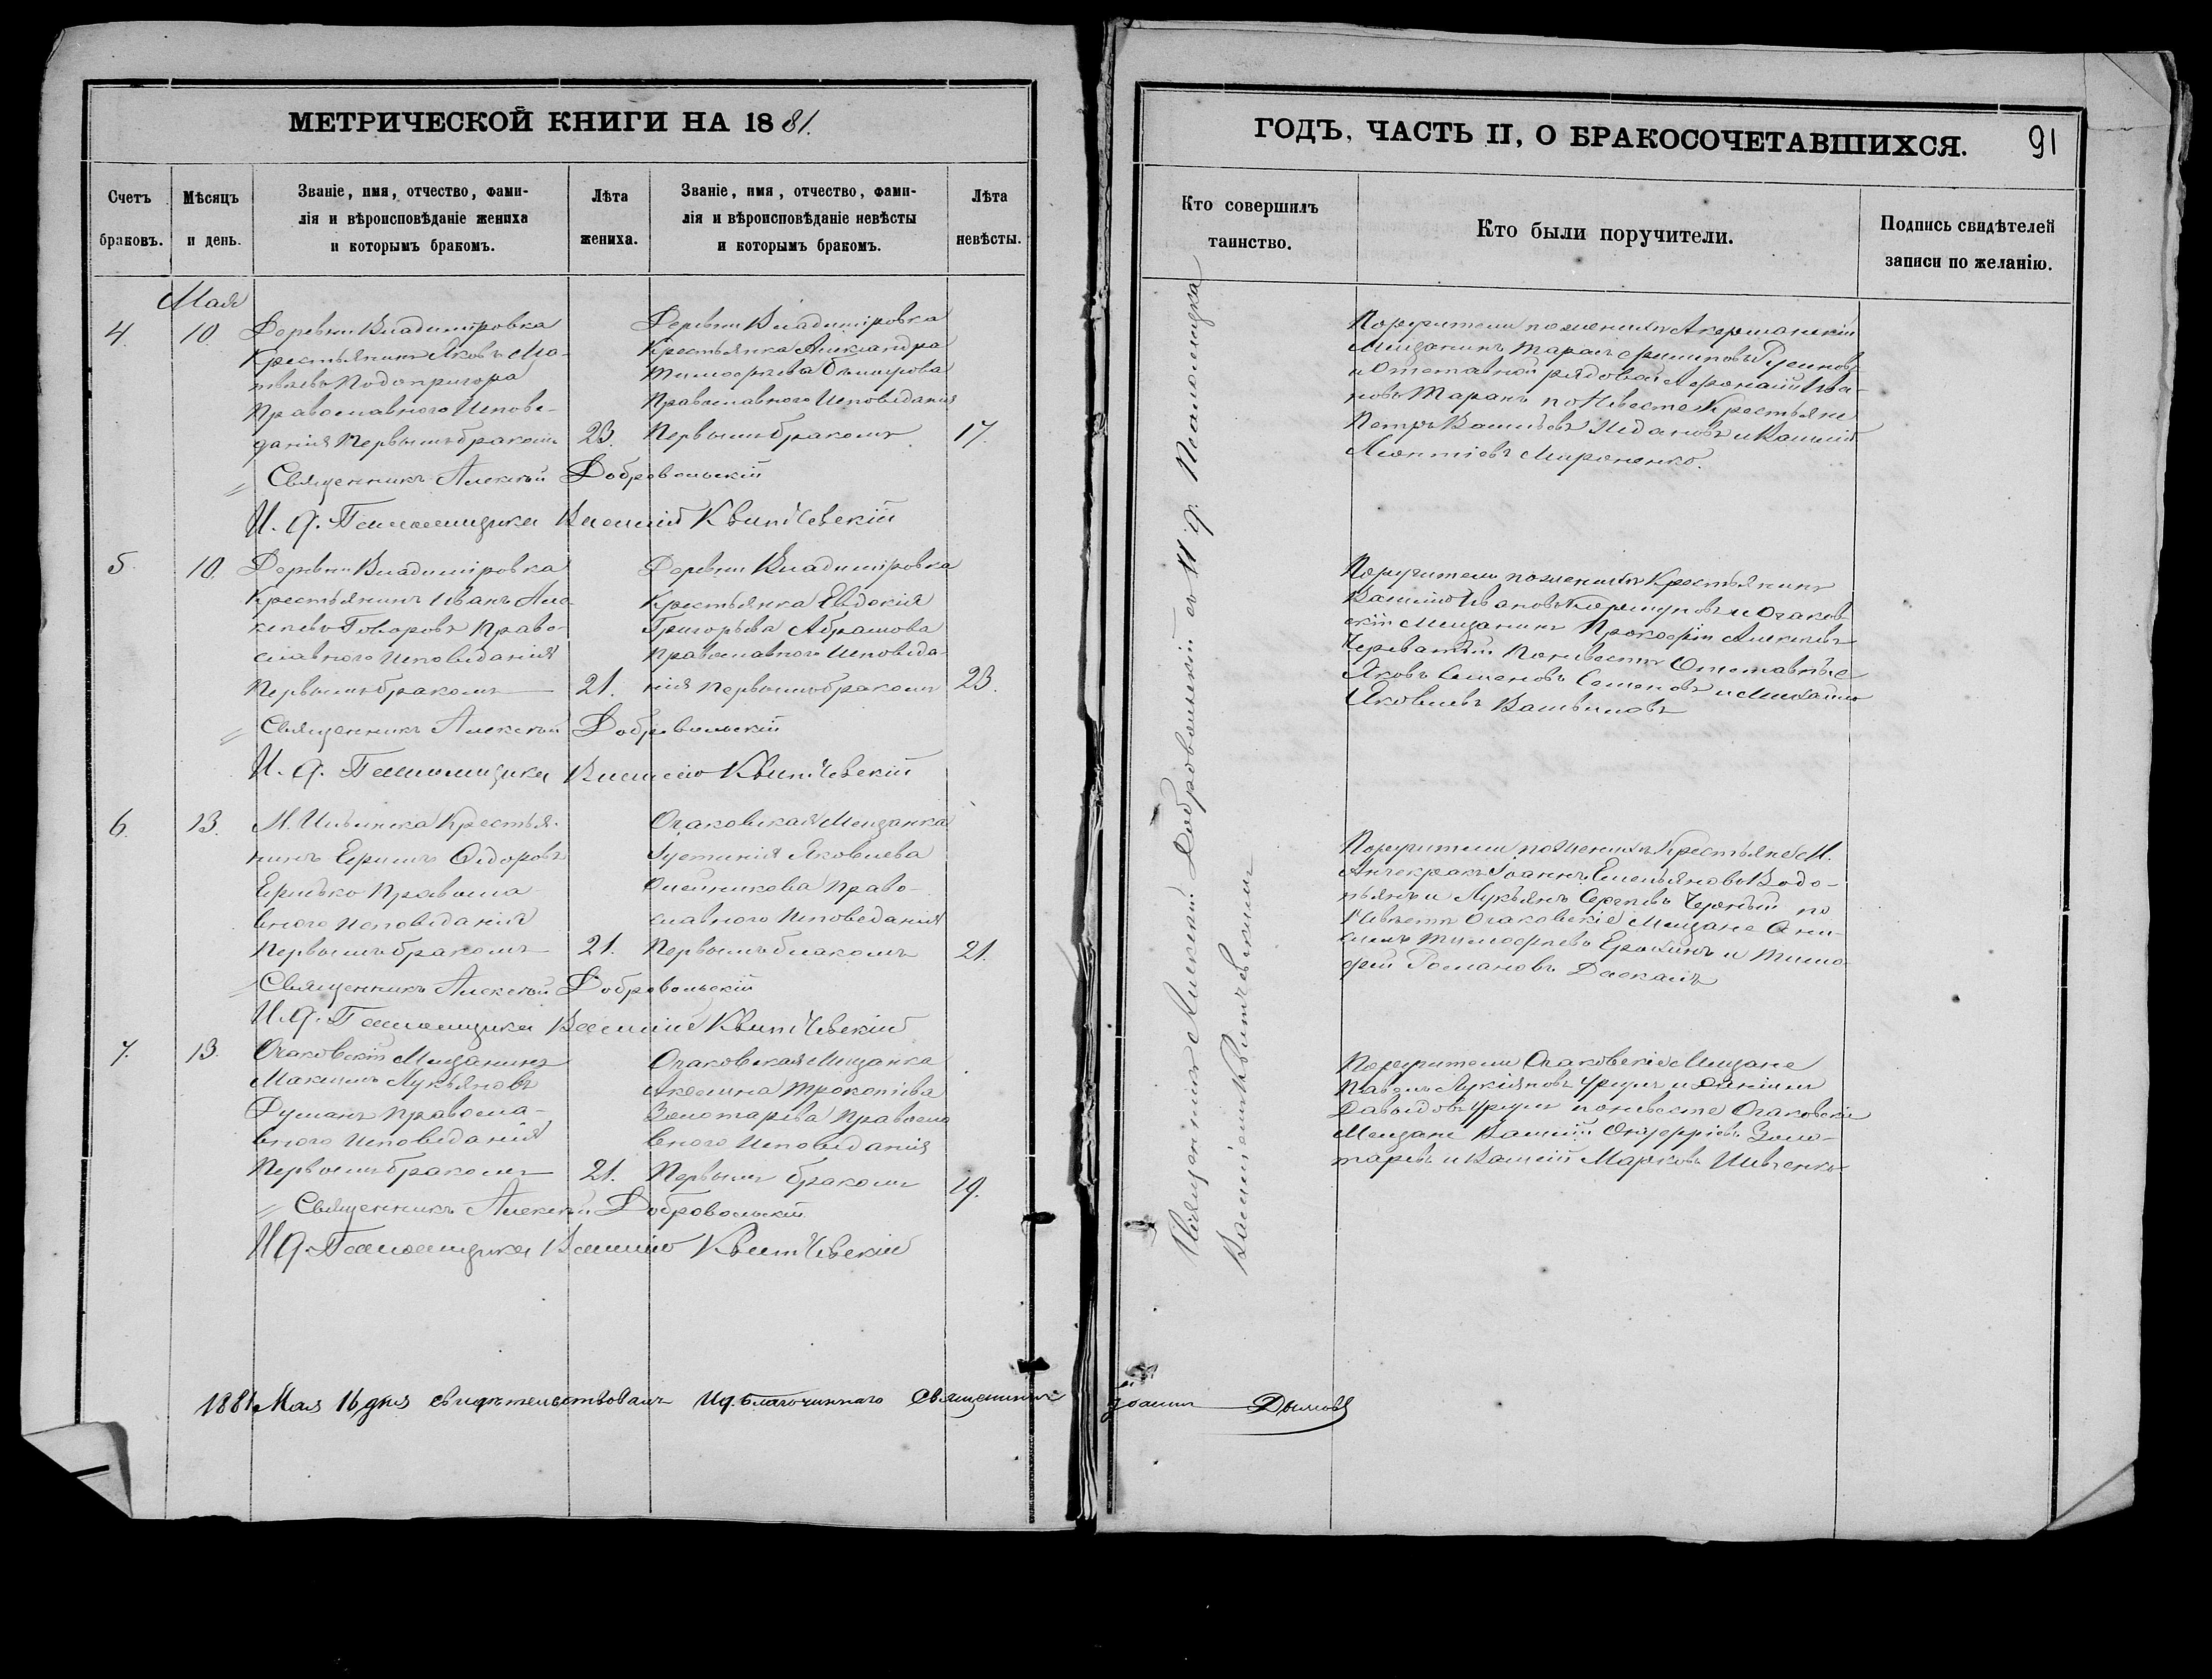 МЕТРИЧЕСКОЙ КНИГИ НА 1881.
Счетъ браковъ.
Мѣсяцъ и день.
Званіе, имя, отчество, фами-
лія и вѣроисповѣданіе жениха
и которымъ бракомъ.
Лѣта жениха.
Званіе, имя, отчество, фами-
лія и вѣроисповѣданіе невѣсты
и которымъ бракомъ.
Лѣта невѣсты.
Мая
4. 10.
Деревни Владимiровка
Крестьянинъ Яковъ Ма-
твѣевъ Подопригора
Православного Испове-
данія Первымъ бракомъ 23.
Деревни Владимiровка
Крестьянка Александра
Тимофѣева
Православного Исповѣданія
Первымъ бракомъ 17.
Священникъ Алексѣй Добровольскій
И. д. Псаломщика Василій Квитчевскій
5. 10.
Деревни Владимiровка
Крестьянинъ Иванъ Але-
ксѣевъ Говоровъ Право-
славного Исповѣданія
Первымъ бракомъ 21.
Деревни Владимiровка
Крестьянка Евдокія
Григорьева Абрамова
Православного Исповѣда-
нія Первымъ бракомъ 23.
Священникъ Алексѣй Добровольскій
И. д. Псаломщика Василій Квитчевскій
6. 13.
М. Ильинка Крестья-
нинъ Ефимъ Ѳедоровъ
Ермько Правосла-
вного Исповѣданія
Первымъ бракомъ 21.
Очаковская Мещанка
Устинія Яковлева
Олейникова Право-
славного Исповеданія
Первымъ бракомъ 21.
Священникъ Алексѣй Добровольскій
И. д. Псаломщика Василій Квитчевскій
7. 13.
Очаковскій Мещанинъ
Максимъ Лукьяновъ
Думанъ Правосла-
вного Исповѣданія
Первымъ бракомъ 21.
Очаковская Мещанка
Акелина
Золотарева Правосла
вного Исповѣданія
Первымъ бракомъ 19.
Священникъ Алексѣй Добровольскій
И д. Псаломщика Василій Квитчевскій
1881 Мая 16 дня свидѣтельствовалъ И. д. Благочиннаго Священникъ Іоаннъ Дымовъ
ГОДЪ, ЧАСТЬ II, О БРАКОСОЧЕТАВШИХСЯ. 91
Кто совершилъ таинство.
Кто были поручители.
Подпись свидѣтелей
записи по желанію.
Священникъ Алексѣй Добровольскій съ И. д. Псаломщика
Василіемъ Квитчевскимъ
Поручители по женихѣ Акерманскій
Мещанинъ Тарасъ Филиповъ
и Отставной рядовой Афонасій Ива-
новъ Таранъ по Невѣсте Крестьяне
Петръ Васильевъ Ждановъ и Василій
Леонтіевъ Мироненко.
Поручители по женихѣ Крестьянинъ
Василій Ивановъ Коршуновъ и Очаков-
скій Мещанинъ Прокофій Алексѣевъ
Череватый По невѣстѣ Отставные
Яковъ Семеновъ Семеновъ и Михаилъ
Яковлевъ
Поручители по женихѣ Крестьяне М.
Анчекракъ Іоаннъ Емельяновъ Водо-
пьянъ и Лукьянъ Сергѣевъ Черный по
Невѣстѣ Очаковскіе Мещане Они-
симъ Тимофѣевъ Ерохинъ и Тимо-
фей Романовъ Даскалъ
Поручители Очаковскіе Мещане
Павелъ Лукіяновъ и
Давыдовъ по невѣсте Очаковскіе
Мещане Василій Онуфріевъ Золо-
таревъ и Василій Марковъ Шевченко